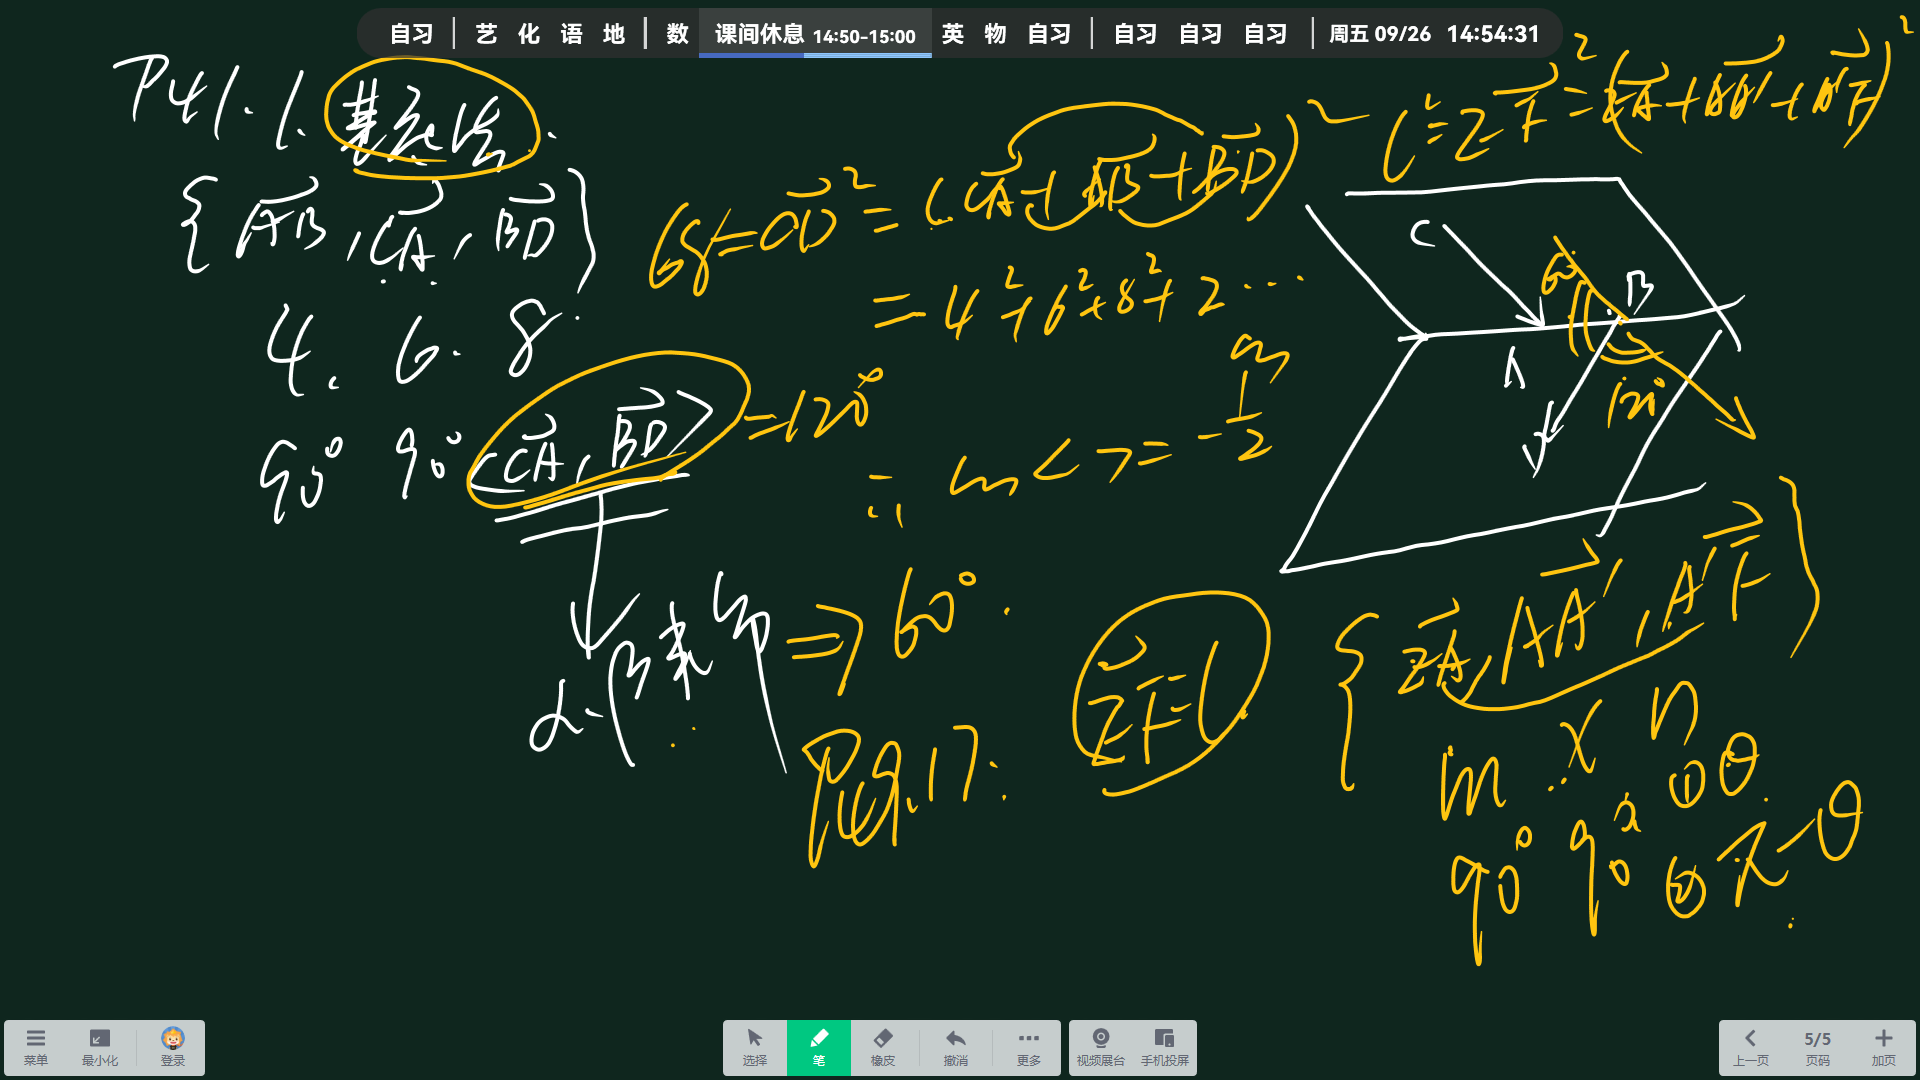 自习 | 艺 化 语 地 | 数 课间休息 14:50-15:00 英 物 自习 | 自习 自习 自习 | 周五 09/26 14:54:31
P41.1.基底法.
{AB, CA, BD}
4. 6. 8.
90° 90° <CA, BD> = 120°
α-β夹角 ⇒ 60°.
68 = CD² = (CA + AB + BD)²
= 4² + 6² + 8² + 2 ...
∴ cos < > = -1/2
P49.17.
EF = l
l² = EF² = (EA + AA' + A'F)²
C
B
A
60°
120°
{EA, AA', A'F}
m x n
90° 90° ① θ.
② π-θ
菜单 最小化 登录
选择 笔 橡皮 撤消 更多
视频展台 手机投屏
上一页 5/5 页码 加页